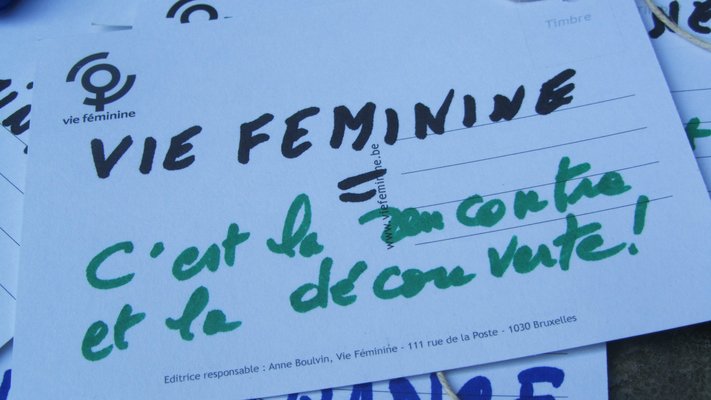 Timbre
vie féminine
VIE FEMININE
=
www.viefeminine.be
C'est la rencontre
et la découverte!
Editrice responsable : Anne Boulvin, Vie Féminine - 111 rue de la Poste - 1030 Bruxelles